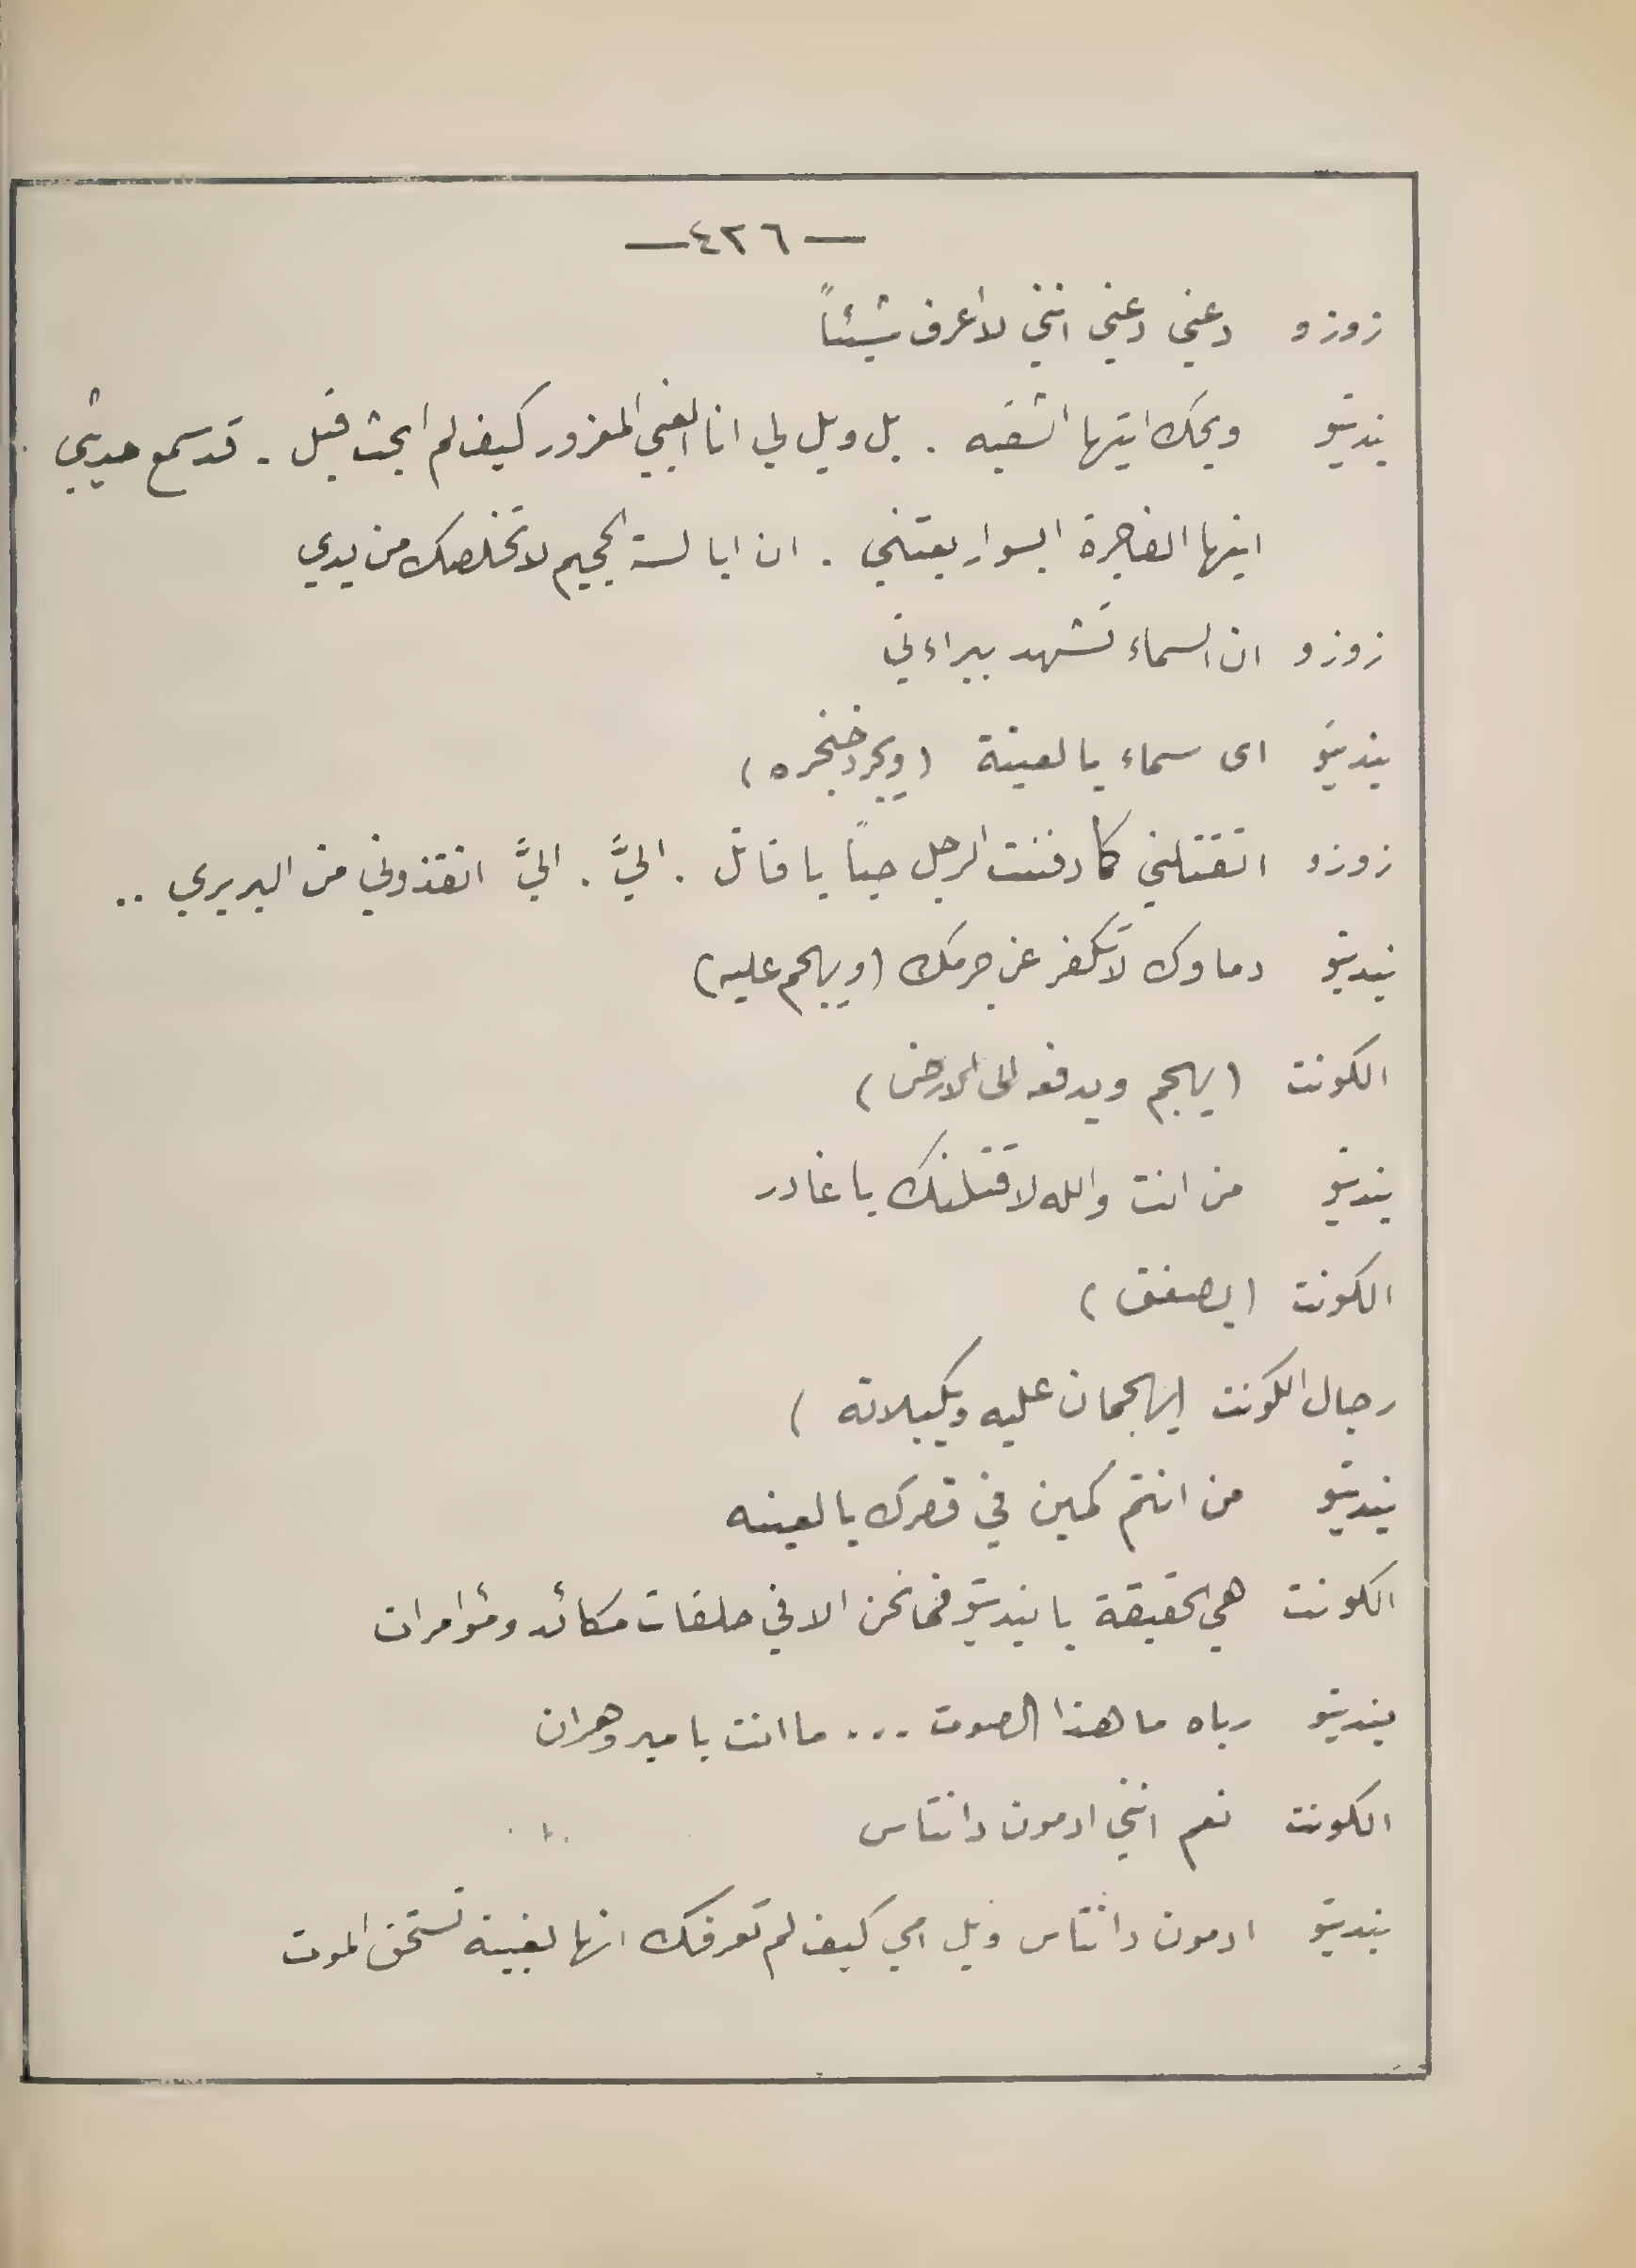 —٤٢٦—
زوزو دعني دعني انني لا اعرف شيئاً
بنديتو ويحك ايتها الشقيه . بل ويل لي انا الغبي المغرور كيف لم ابحث قبل . قد سمع حديثي
ايتها الفاجرة ابسوار بعتني . ان ابالسة الجحيم لا تخلصك من يدي
زوزو ان السماء تشهد ببراءتي
بنديتو اى سماء يا لعينة (ويجرد خنجره)
زوزو اتقتلني كما دفنت الرجل حياً يا قاتل . اليَّ . اليَّ انقذوني من البربري ..
بنديتو دماوك لا تكفر عن جرمك (ويهجم عليه)
الكونت (يهجم ويدفعه الى الارض)
بنديتو من انت والله لاقتلنك يا غادر
الكونت (يصفق)
رجال الكونت (يهجمان عليه ويكبلانه)
بنديتو من انتم كمين في قصرك يا لعينه
الكونت هي الحقيقة يا بنديتو فما نحن الا في حلقات مكائد ومؤامرات
بنديتو رباه ما هذا الصوت ... ما انت يا مير وهران
الكونت نعم انني ادمون دانتاس
بنديتو ادمون دانتاس ويل امي كيف لم تعرفك انها لغبية تستحق الموت